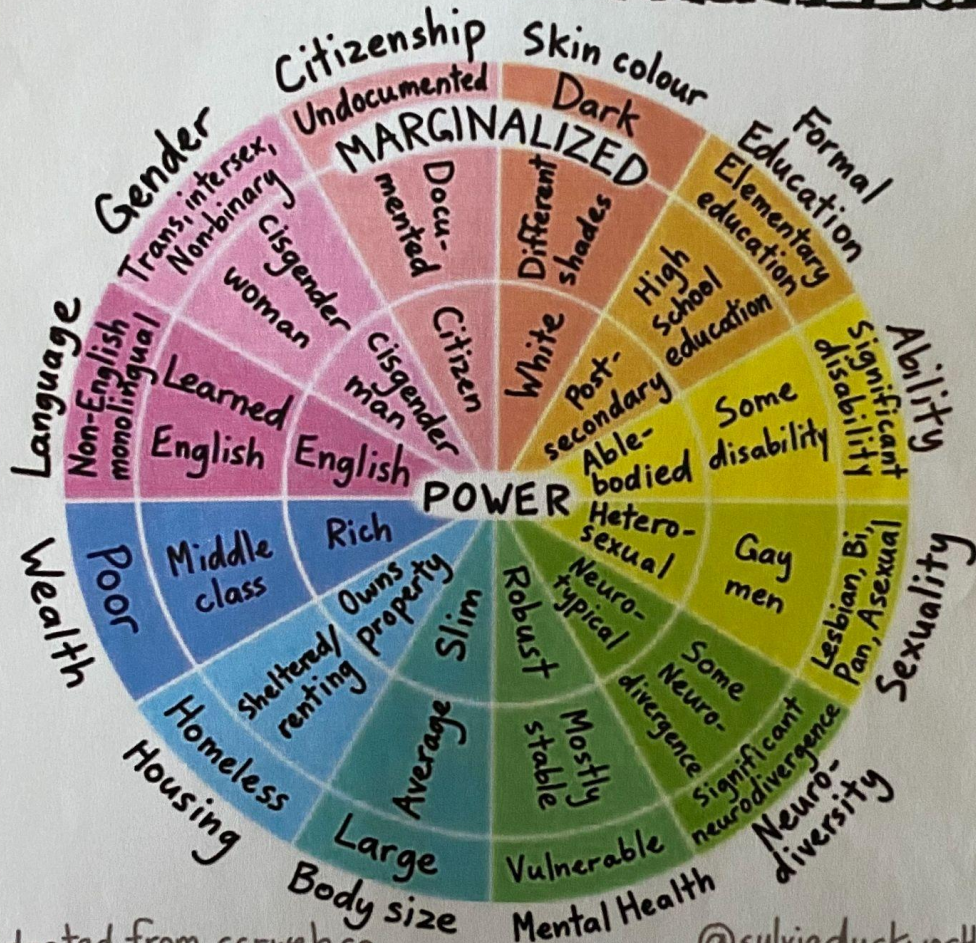 Citizenship
Undocumented
Docu-
mented
Citizen
Skin colour
Dark
Different
shades
White
Formal
Education
Elementary
education
High
school
education
Post-
secondary
Ability
Significant
disability
Some
disability
Able-
bodied
Sexuality
Lesbian, Bi,
Pan, Asexual
Gay
men
Hetero-
sexual
Neuro-
diversity
Significant
neurodivergence
Some
Neuro-
divergence
Neuro-
typical
Mental Health
Vulnerable
Mostly
stable
Robust
Body size
Large
Average
Slim
Housing
Homeless
Sheltered/
renting
Owns
property
Wealth
Poor
Middle
class
Rich
Language
Non-English
monolingual
Learned
English
English
Gender
Trans, intersex,
Non-binary
cisgender
woman
cisgender
man
MARGINALIZED
POWER
from